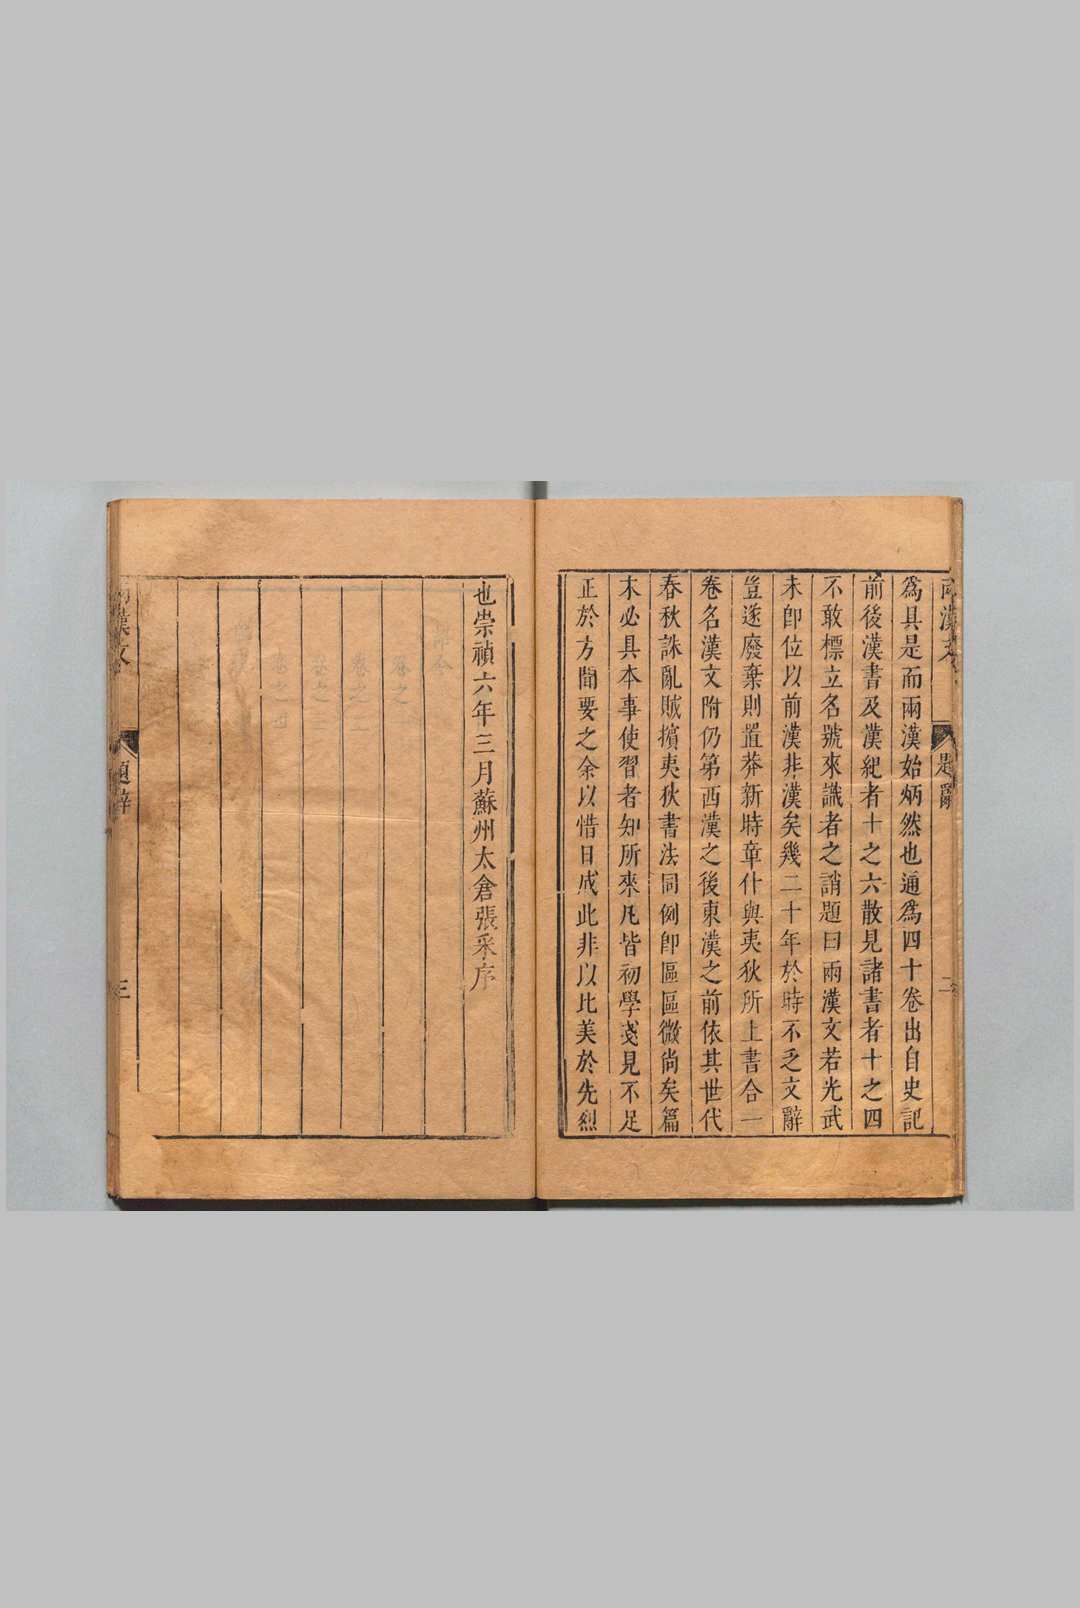 兩漢文
題辭
二
爲具是而兩漢始炳然也通爲四十卷出自史記
前後漢書及漢紀者十之六散見諸書者十之四
不敢標立名號來識者之誚題曰兩漢文若光武
未卽位以前漢非漢矣幾二十年於時不乏文辭
豈遂廢棄則置莽新時章什與夷狄所上書合一
卷名漢文附仍第西漢之後東漢之前依其世代
春秋誅亂賊擯夷狄書法同例卽區區微尙矣篇
末必具本事使習者知所來凡皆初學淺見不足
正於方聞要之余以惜日成此非以比美於先烈
也崇禎六年三月蘇州太倉張采序
兩漢文
題辭
三